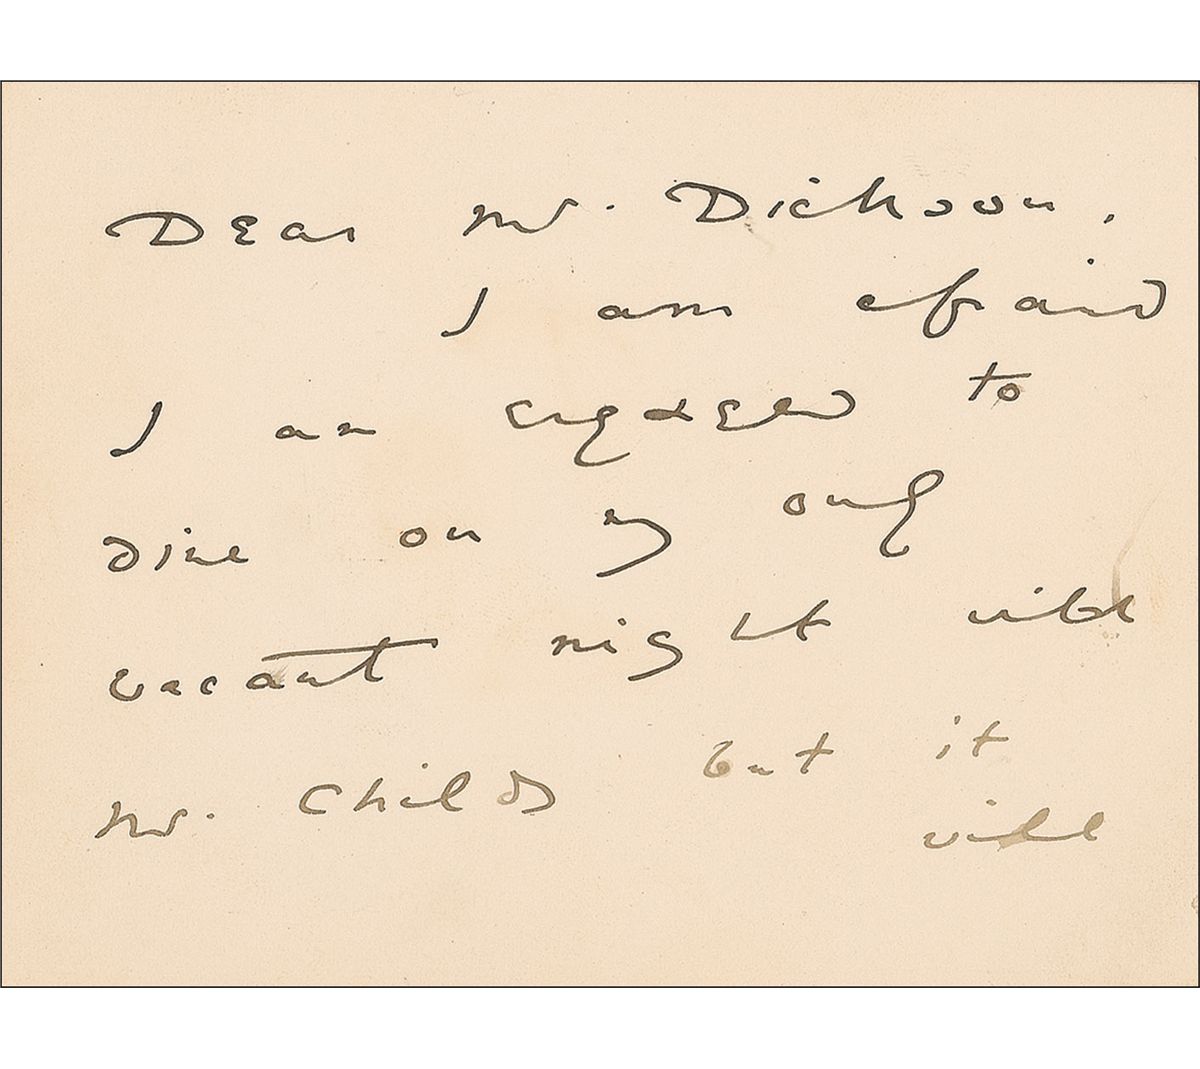 Dear Mr. Dickson,
I am afraid
I am engaged to
dine on my only
vacant night with
Mr. Childs but it
will